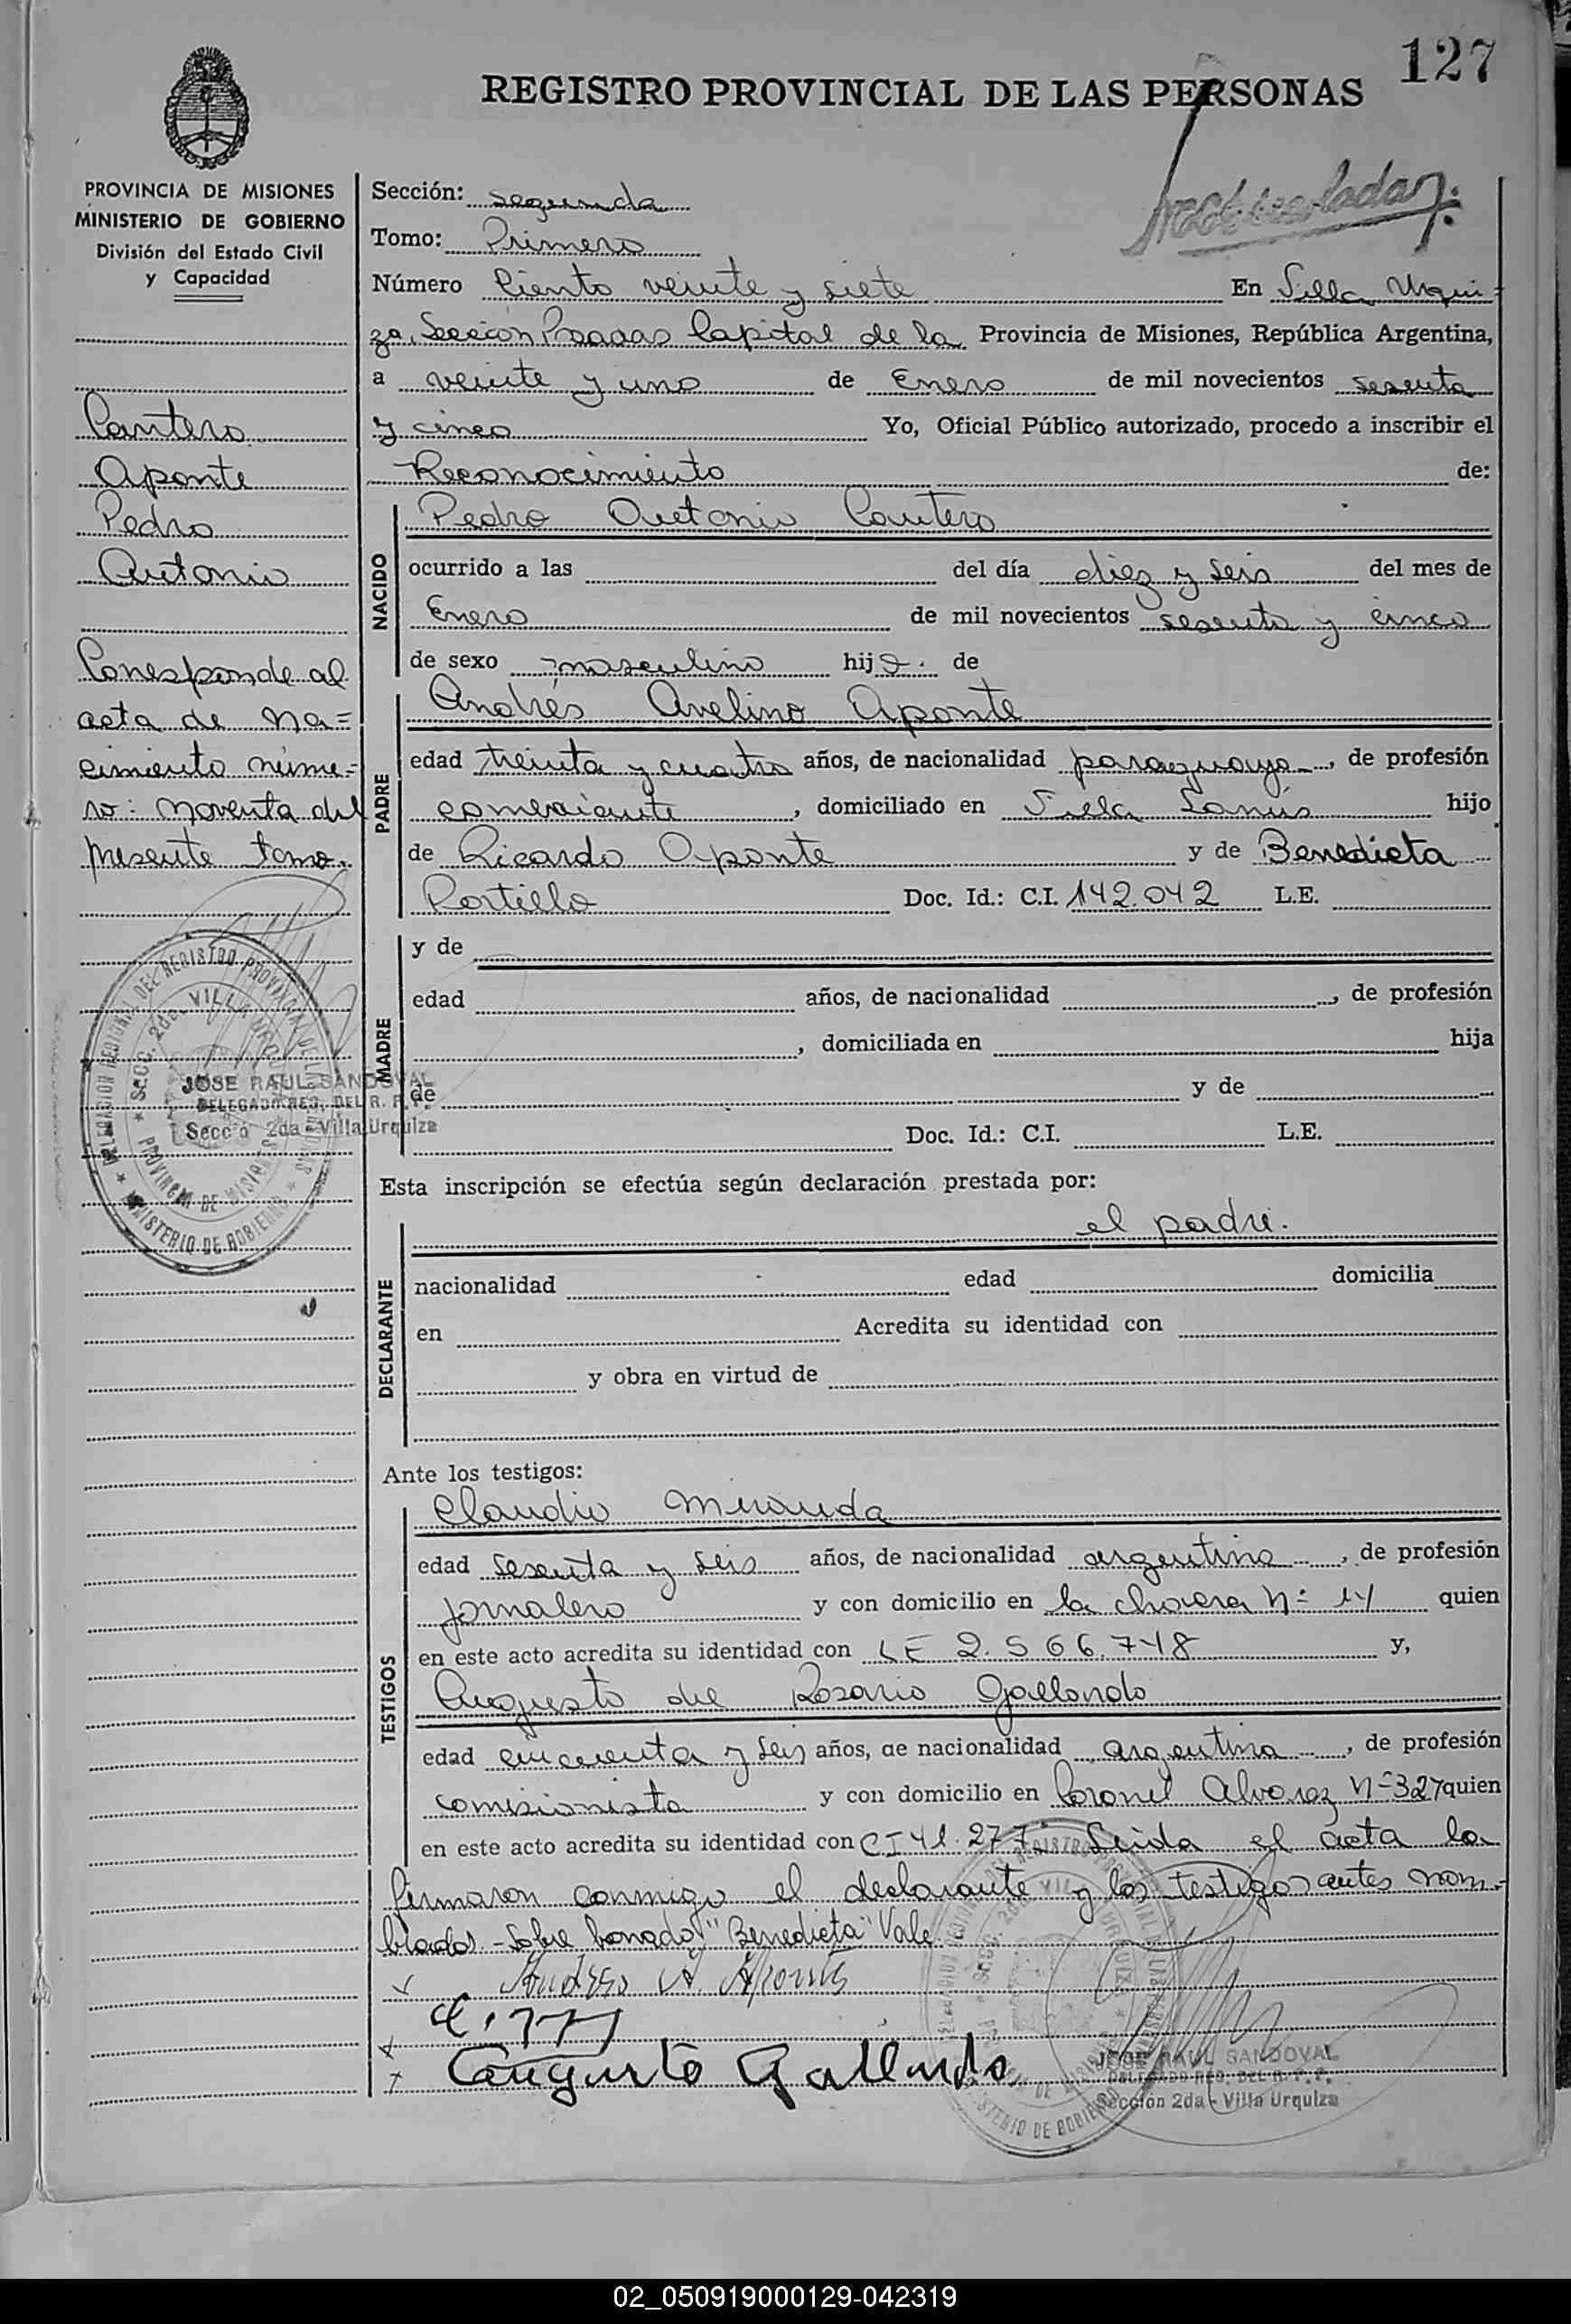 127
REGISTRO PROVINCIAL DE LAS PERSONAS
PROVINCIA DE MISIONES
MINISTERIO DE GOBIERNO
División del Estado Civil
y Capacidad
Cantero
Aponte
Pedro
Antonio
Corresponde al
acta de na=
cimiento núme=
ro: noventa del
presente tomo.
JOSE RAUL SANDOVAL
DELEGADO REG. DEL R. P. P.
Secció 2da - Villa Urquiza
Sección: segunda
Tomo: Primero
Número Ciento veinte y siete En Villa Urqui-
za, Sección Posadas Capital de la Provincia de Misiones, República Argentina,
a veinte y uno de Enero de mil novecientos sesenta
y cinco Yo, Oficial Público autorizado, procedo a inscribir el
Reconocimiento de:
NACIDO
Pedro Antonio Cantero
ocurrido a las del día diez y seis del mes de
Enero de mil novecientos sesenta y cinco
de sexo masculino hijo. de
PADRE
Andrés Avelino Aponte
edad treinta y cuatro años, de nacionalidad paraguaya, de profesión
comerciante, domiciliado en Villa Lanús hijo
de Ricardo Aponte y de Benedicta
Portillo Doc. Id.: C.I. 142.042 L.E.
MADRE
y de
edad años, de nacionalidad , de profesión
, domiciliada en hija
de y de
Doc. Id.: C.I. L.E.
Esta inscripción se efectúa según declaración prestada por:
DECLARANTE
el padre.
nacionalidad edad domicilia
en Acredita su identidad con
y obra en virtud de
Ante los testigos:
TESTIGOS
Claudio Miranda
edad sesenta y seis años, de nacionalidad argentina, de profesión
jornalero y con domicilio en la chacra N= 14 quien
en este acto acredita su identidad con LE 2.566.718 y,
Augusto del Rosario Gallardo
edad cincuenta y seis años, de nacionalidad argentina, de profesión
comisionista y con domicilio en Coronel Alvarez N=327 quien
en este acto acredita su identidad con CI 41.277 Leída el acta la
firmaron conmigo el declarante y los testigos antes nom-
brados.-Sobre borrado "Benedicta" Vale
Andres A. Aponte
Augusto Gallardo
JOSE RAUL SANDOVAL
DELEGADO REG. DEL R. P. P.
Sección 2da - Villa Urquiza
02_050919000129-042319